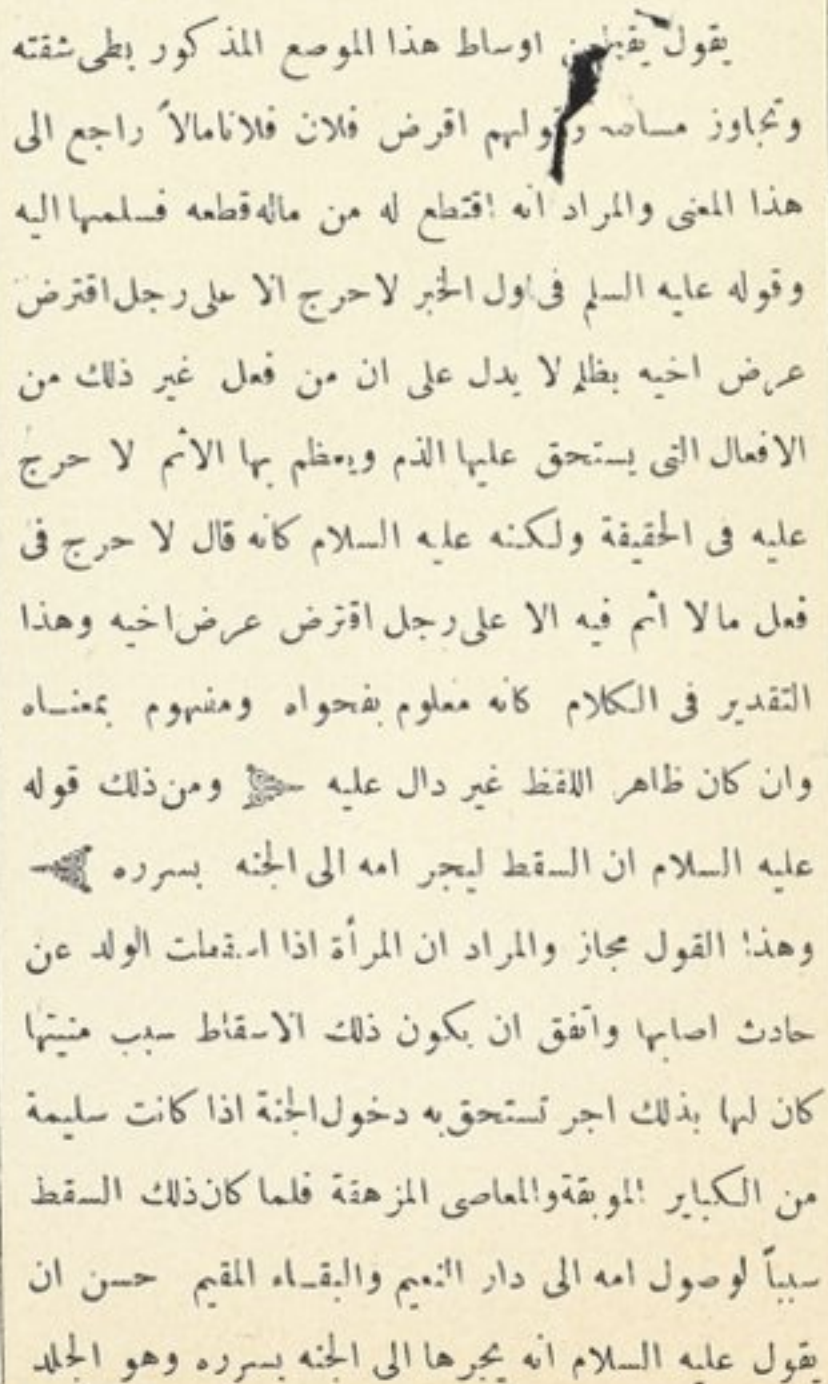 يقول يقطعن اوساط هذا الموصع المذكور بطى شقته
وتجاوز مسافته وقولهم اقرض فلان فلانا مالاً راجع الى
هذا المعنى والمراد انه اقتطع له من ماله قطعه فسلمها اليه
وقوله عليه السلم فى اول الخبر لا حرج الا على رجل اقترض
عرض اخيه بظلم لا يدل على ان من فعل غير ذلك من
الافعال التى يستحق عليها الذم ويعظم بها الأثم لا حرج
عليه فى الحقيقة ولكنه عليه السلام كانه قال لا حرج فى
فعل مالا أثم فيه الا على رجل اقترض عرض اخيه وهذا
التقدير فى الكلام كانه معلوم بفحواه ومفهوم بمعنـاه
وان كان ظاهر اللفظ غير دال عليه ومن ذلك قوله
عليه السلام ان السقط ليجر امه الى الجنه بسرره
وهذا القول مجاز والمراد ان المرأة اذا اسقطت الولد عن
حادث اصابها واتفق ان يكون ذلك الاسقاط سبب منيتها
كان لها بذلك اجر تستحق به دخول الجنة اذا كانت سليمة
من الكباير الموبقة والمعاصى المزهقة فلما كان ذلك السقط
سبباً لوصول امه الى دار النعيم والبقـاء المقيم حسن ان
يقول عليه السلام انه يجرها الى الجنه بسرره وهو الجلد